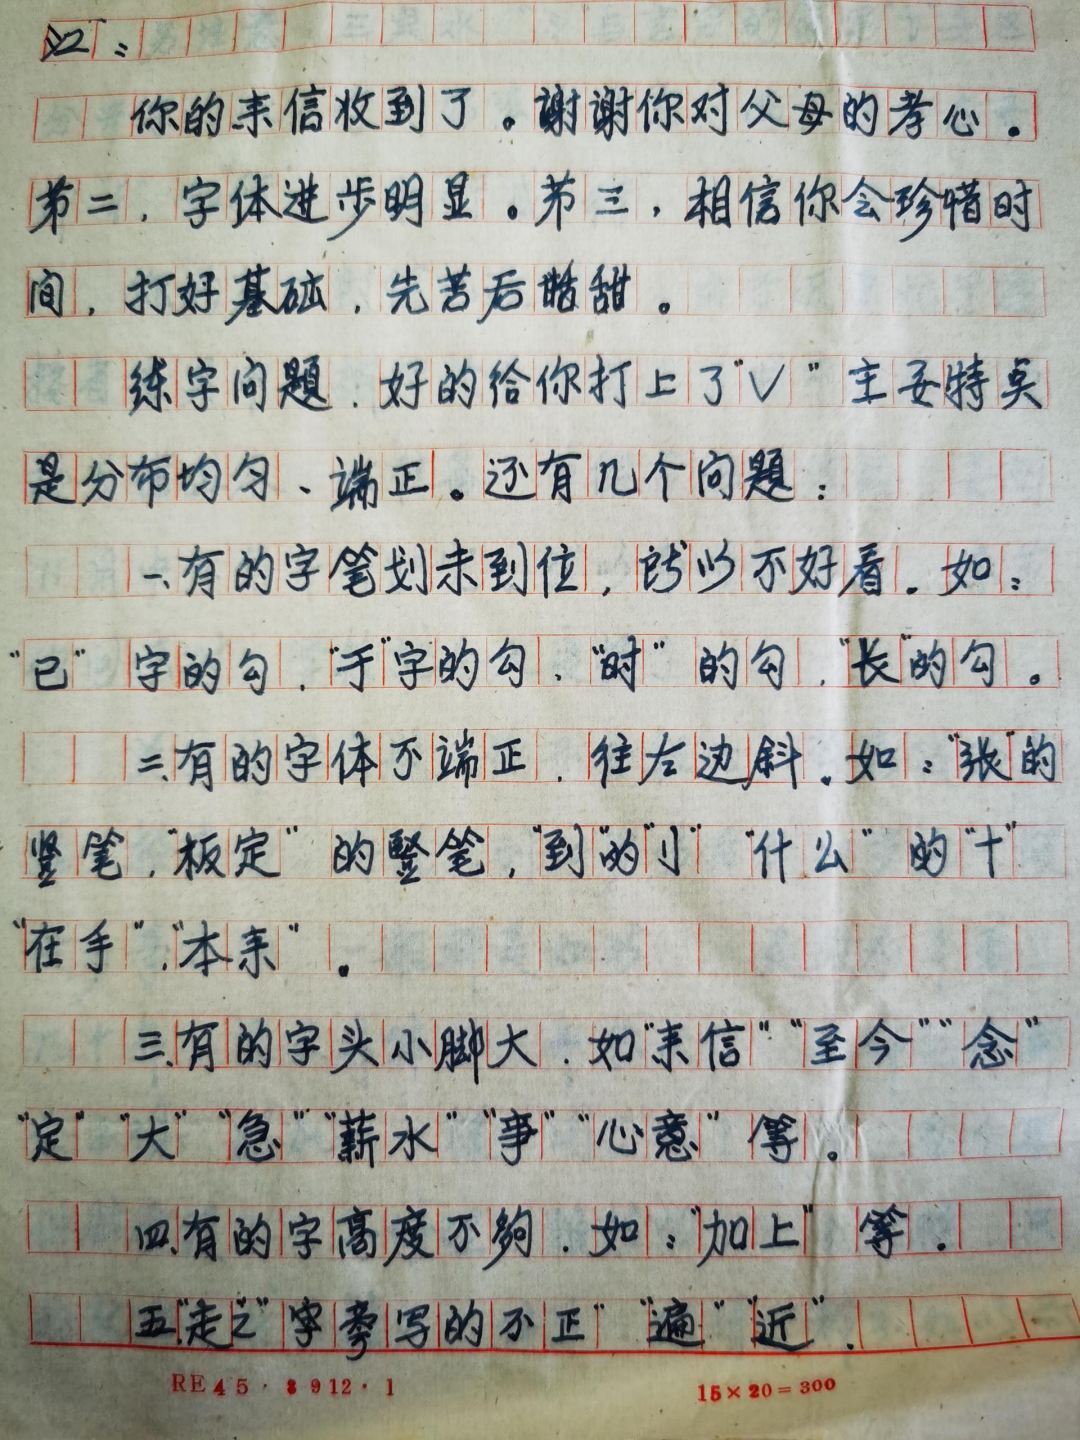 江：
你的来信收到了。谢谢你对父母的孝心。
第二，字体进步明显。第三，相信你会珍惜时
间，打好基础，先苦后甜。
练字问题，好的给你打上了"√"主要特点
是分布均匀、端正。还有几个问题：
一、有的字笔划未到位，所以不好看。如：
"已"字的勾，"于"字的勾、"时"的勾，"长"的勾。
二、有的字体不端正，往左边斜。如："张"的
竖笔，"板定"的竖笔，"到"的"刂""什么"的"十"
"在手"，"本来"。
三、有的字头小脚大，如"来信""至今""念"
"定""大""急""薪水""事""心意"等。
四、有的字高度不够，如："加上"等。
五"走之"字旁写的不正"遍""近"。
RE45·8912·1
15×20=300